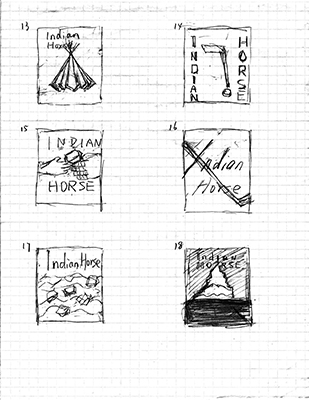 13
Indian
Horse
14
INDIAN
HORSE
15
INDIAN
HORSE
16
Indian
Horse
17
Indian Horse
18
Indian
HORSE